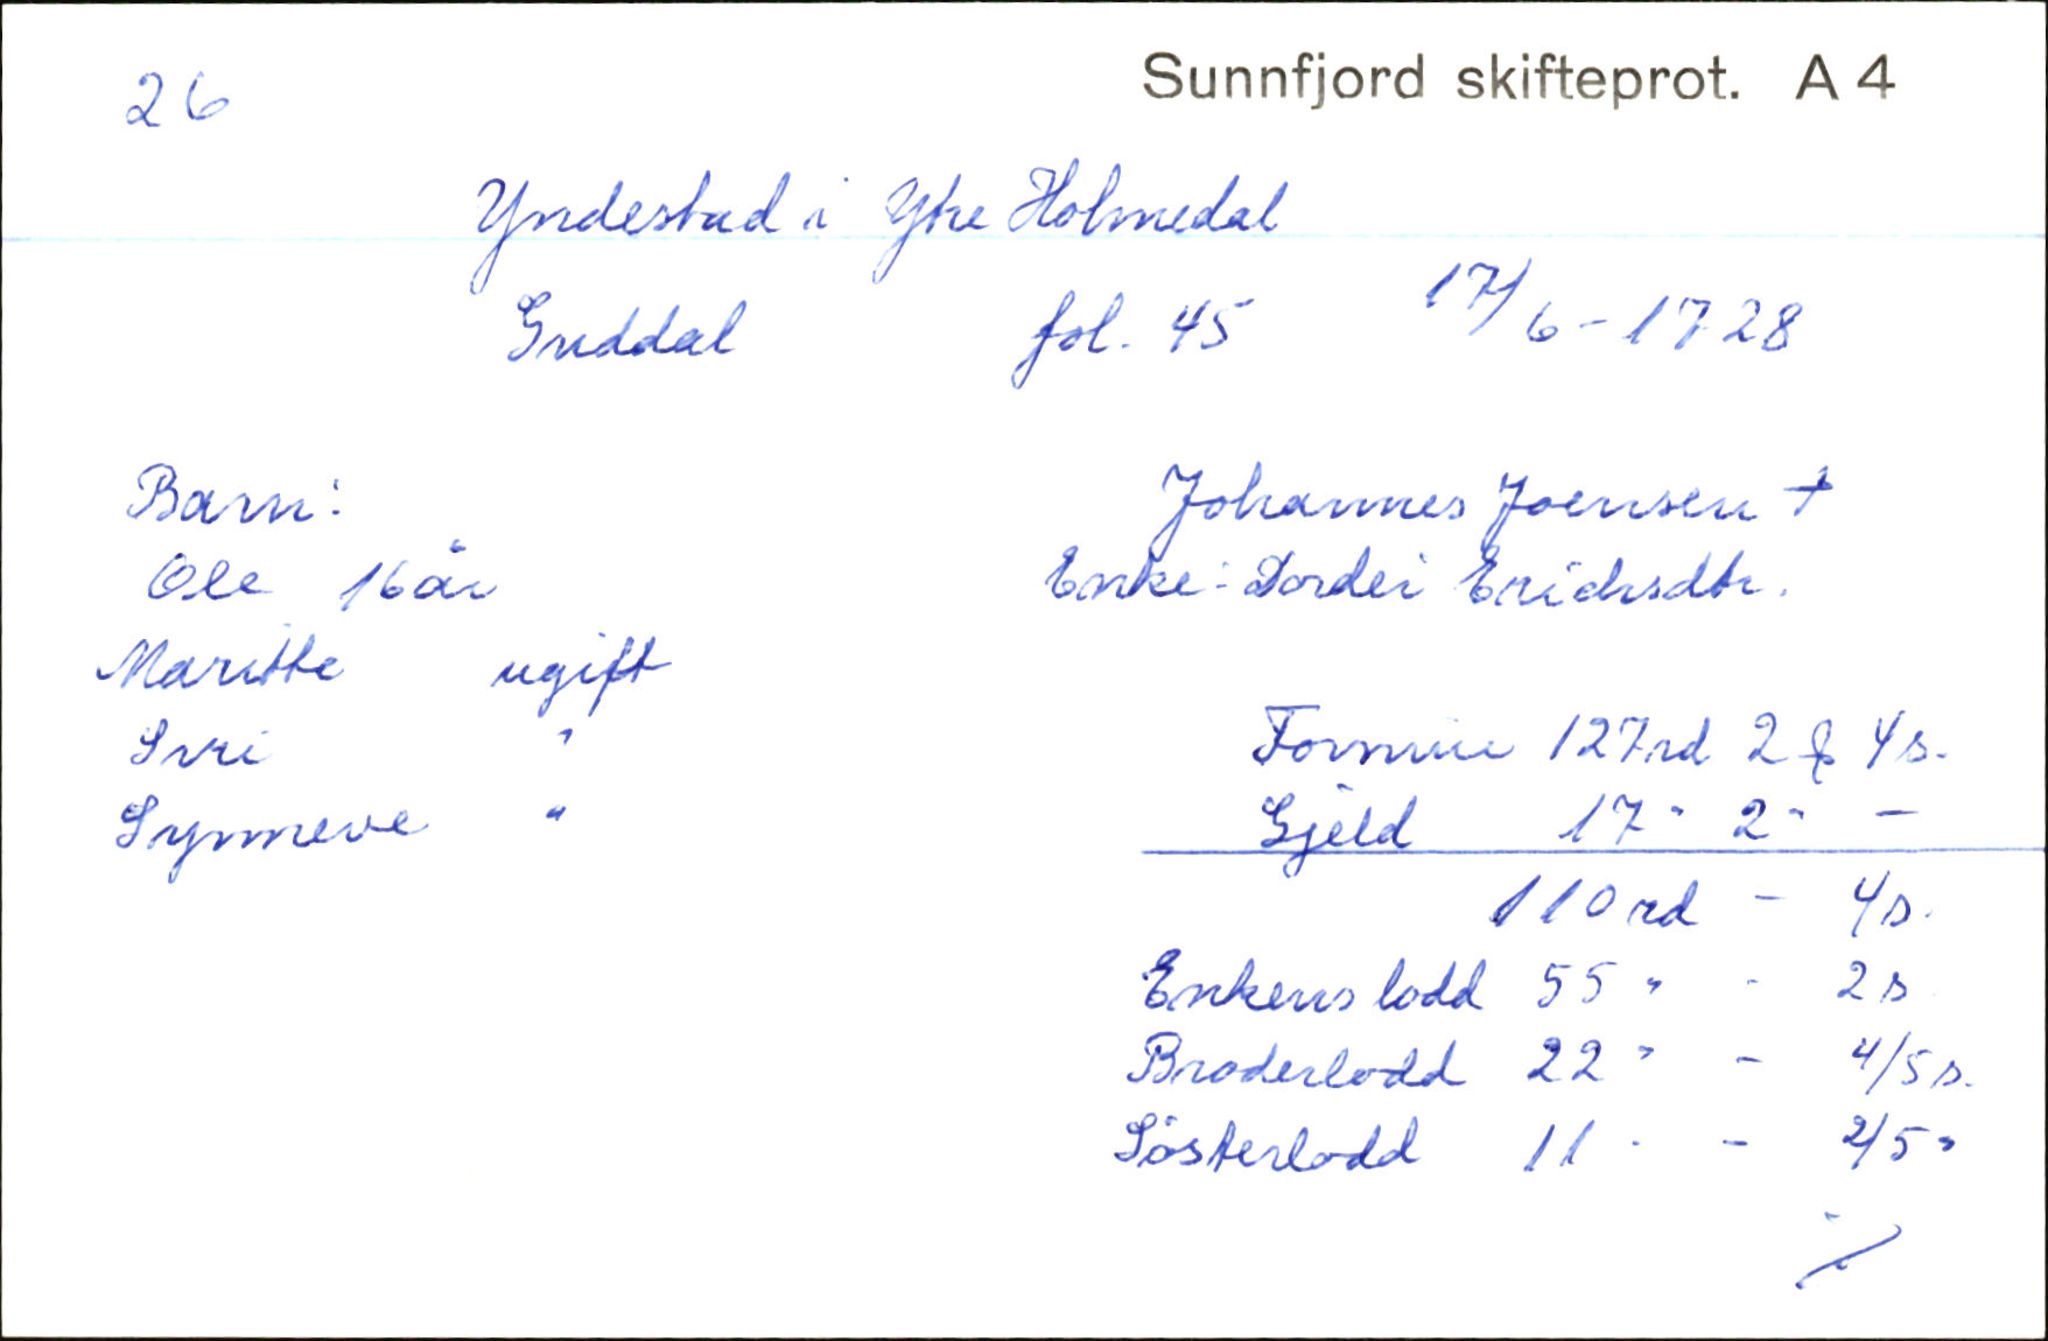 26
Sunnfjord skifteprot. A 4
Yndestad i Ytre Holmedal
Guddal fol. 45 17/6-1728
Barn: Johannes Joensen +
Ole 16 år Enke: Dordei Erichsdtr.
Maritte ugift
Siri " Formue 127 rd 2 ₰ 4 s.
Synneve " Gjeld 17 " 2 " -
110 rd - 4 s.
Enkens lodd 55 " - 2 s
Broderlodd 22 " - 4/5 s.
Søsterlodd 11 " - 2/5 "